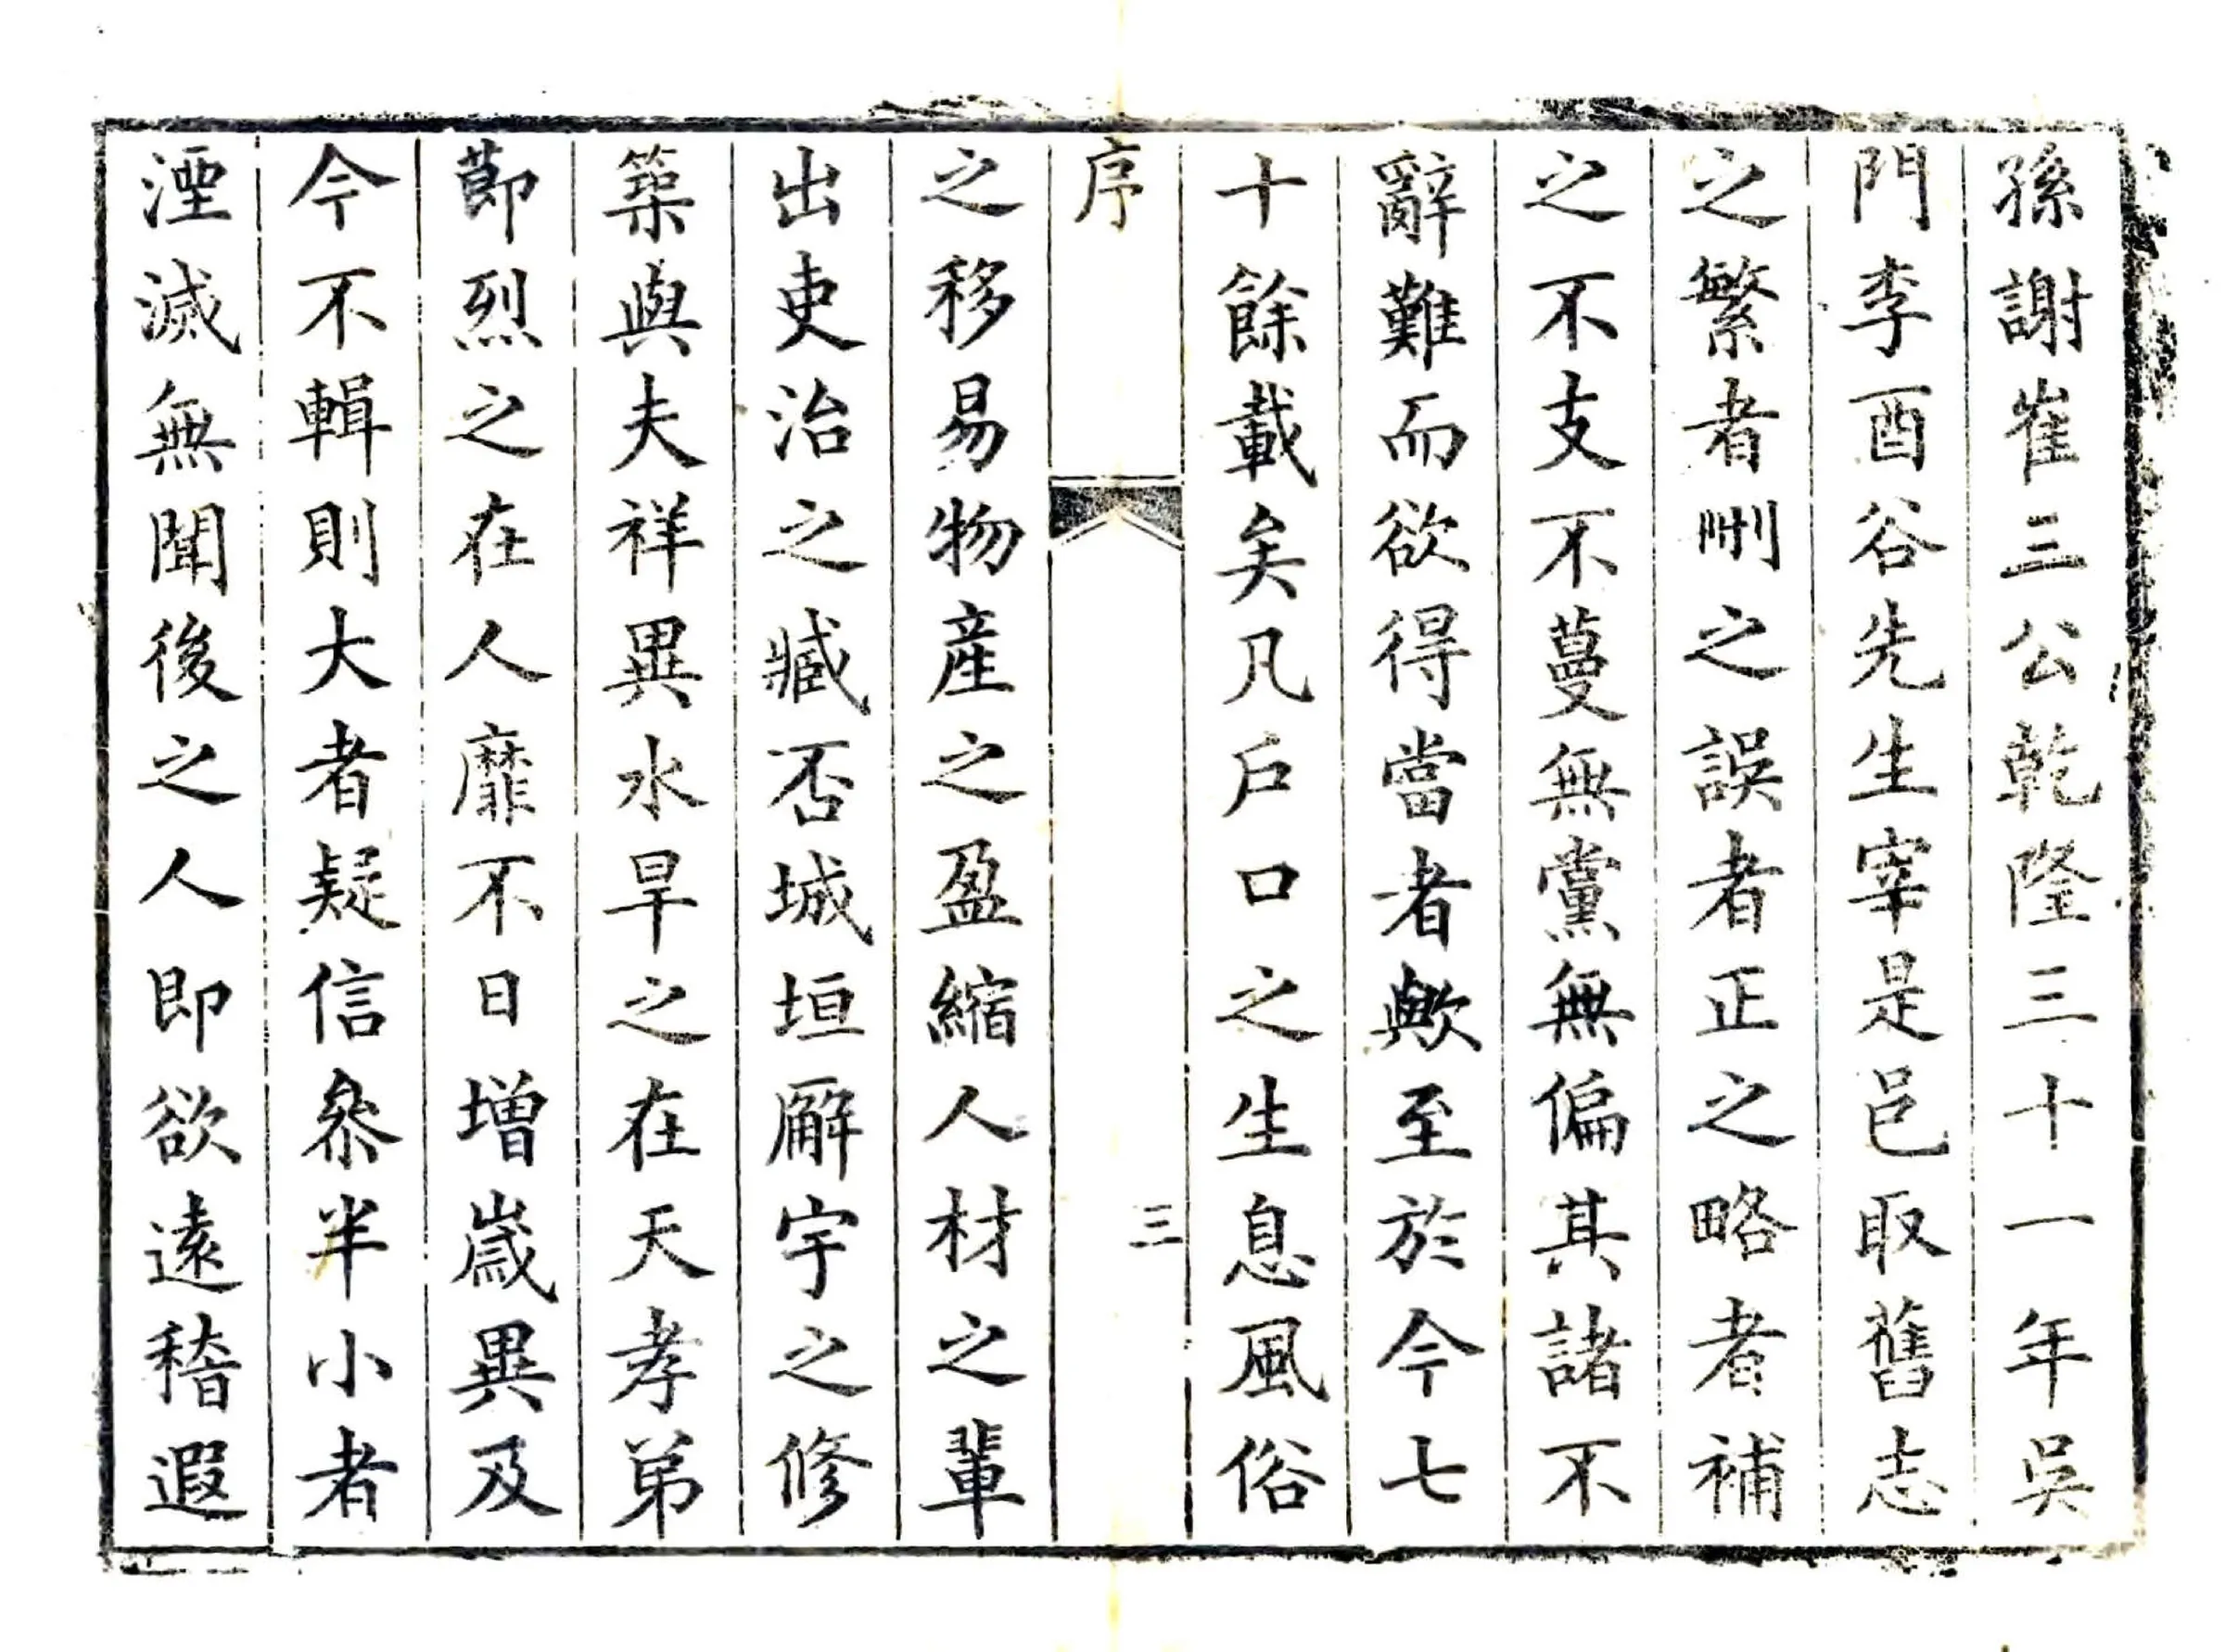 孫謝崔三公乾隆三十一年吳
門李酉谷先生宰是邑取舊志
之繁者刪之誤者正之略者補
之不支不蔓無黨無偏其諸不
辭難而欲得當者歟至於今七
十餘載矣凡戶口之生息風俗
序
三
之移易物產之盈縮人材之輩
出吏治之臧否城垣廨宇之修
築與夫祥異水旱之在天孝弟
節烈之在人靡不日增歲異及
今不輯則大者疑信叅半小者
湮滅無聞後之人即欲遠稽遐